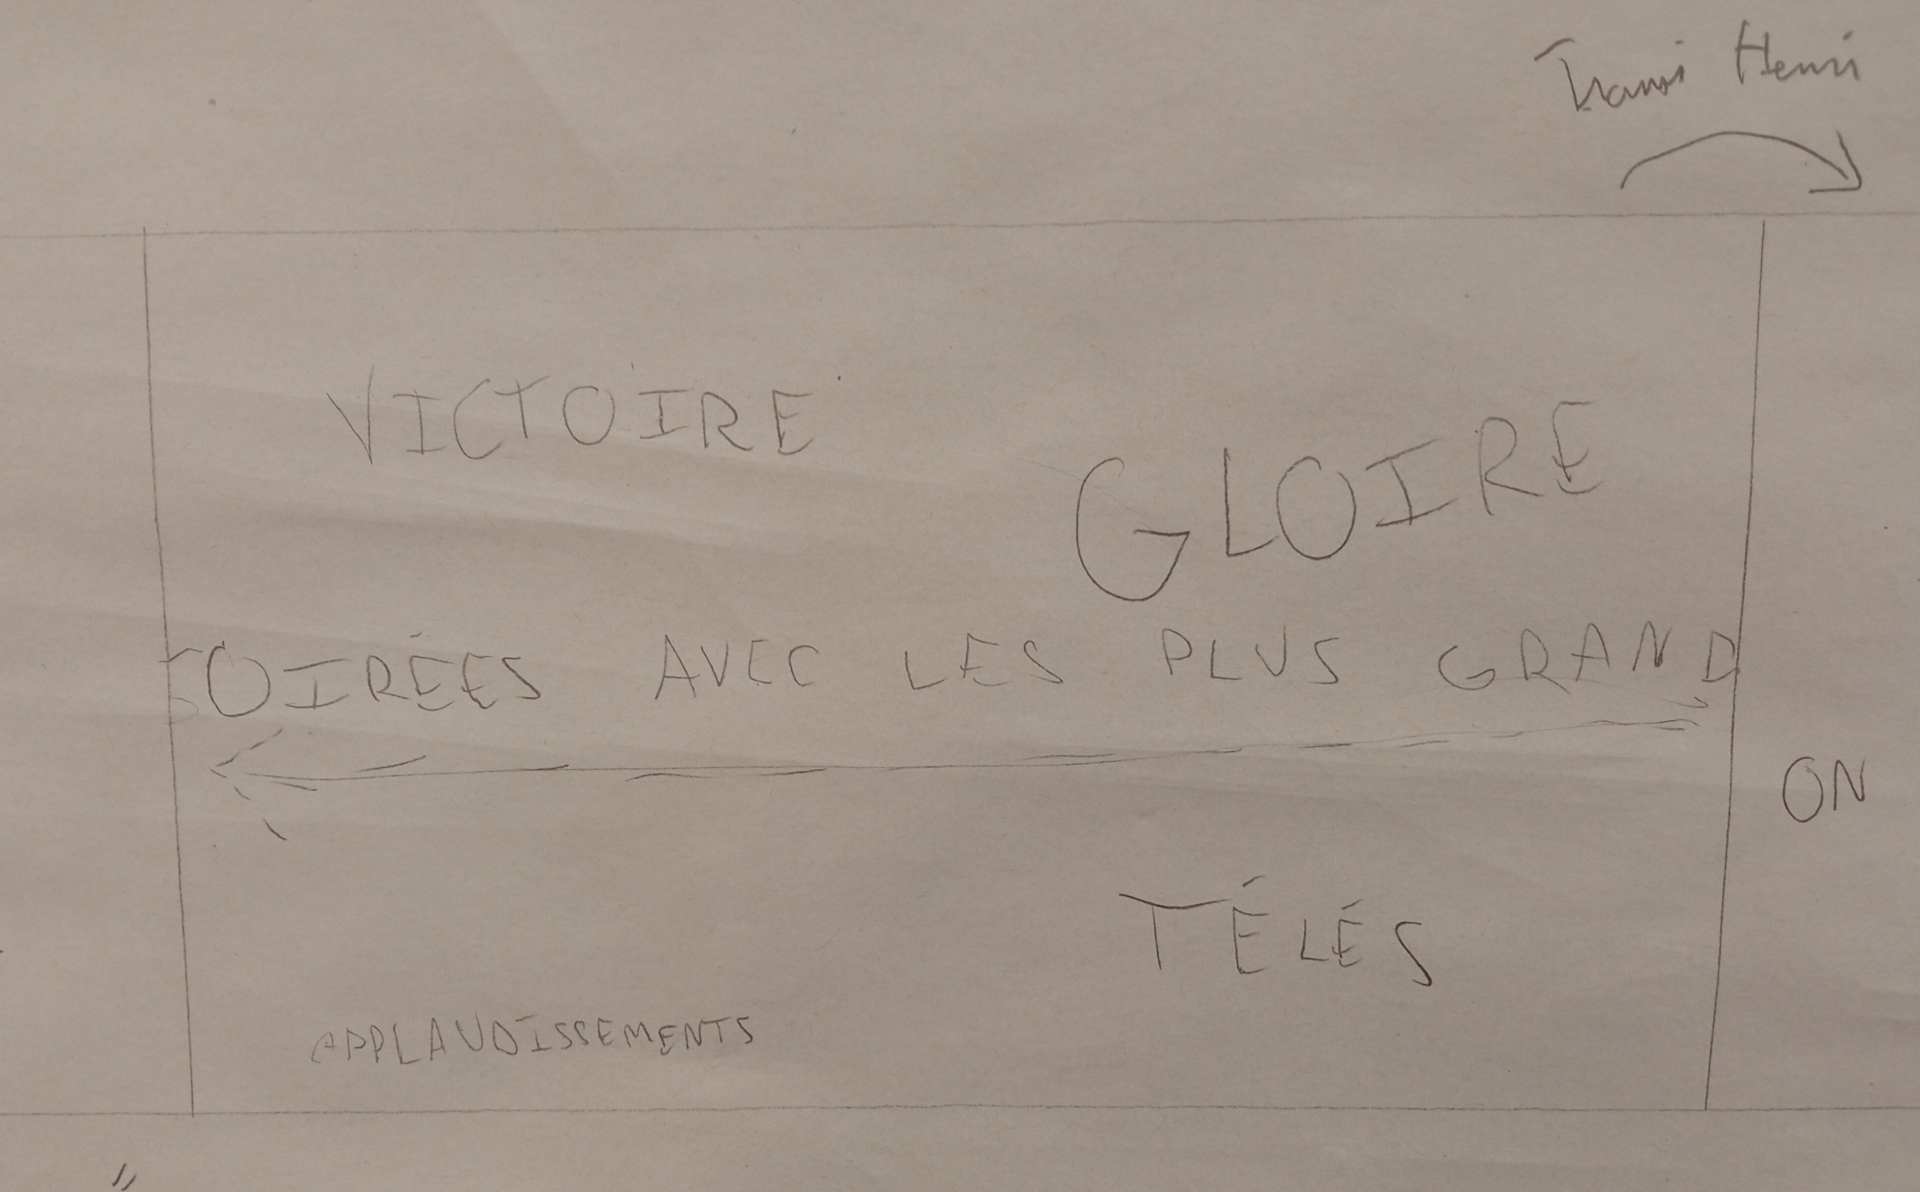 Transi Henri
VICTOIRE
GLOIRE
SOIRÉES AVEC LES PLUS GRAND
ON
TÉLÉS
APPLAUDISSEMENTS
"